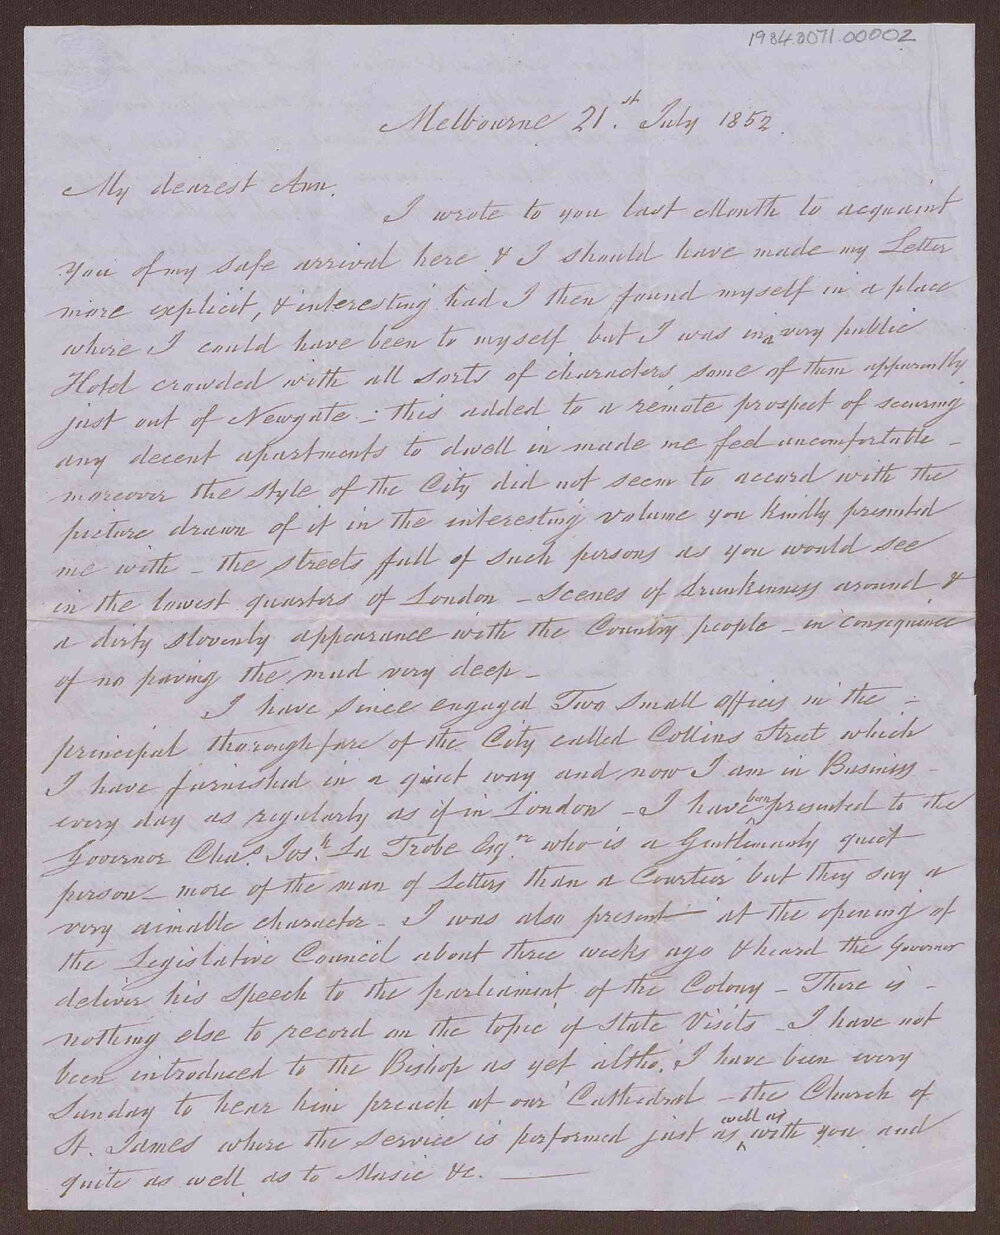 1984.0071.00002
Melbourne 21.st July 1852.
My dearest Ann.
I wrote to you last Month to acquaint
you of my safe arrival here & I should have made my Letter
more explicit, & interesting had I then found myself in a place
where I could have been to myself but I was in a very public
Hotel crowded with all sorts of characters, some of them apparently
just out of Newgate - this added to a remote prospect of securing
any decent apartments to dwell in made me feel uncomfortable -
moreover the style of the City did not seem to accord with the
picture drawn of it in the interesting volume you kindly presented
me with - the streets full of such persons as you would see
in the lowest quarters of London - Scenes of drunkenness around &
a dirty slovenly appearance with the Country people - in consequence
of no paving the mud very deep -
I have since engaged Two small offices in the -
principal thoroughfare of the City called Collins Street which
I have furnished in a quiet way and now I am in Business -
every day as regularly as if in London - I have been presented to the
Governor Chas. Josh. La Trobe Esqre who is a Gentlemanly quiet
person - more of the man of Letters than a Courtier but they say a
very aimable character - I was also present at the opening of
the Legislative Council about three weeks ago & heard the Governor
deliver his speech to the parliament of the Colony - There is -
nothing else to record on the topic of State Visits - I have not
been introduced to the Bishop as yet altho' I have been every
Sunday to hear him preach at our Cathedral - the Church of
St. James where the service is performed just as well as with you and
quite as well as to Music &c. —